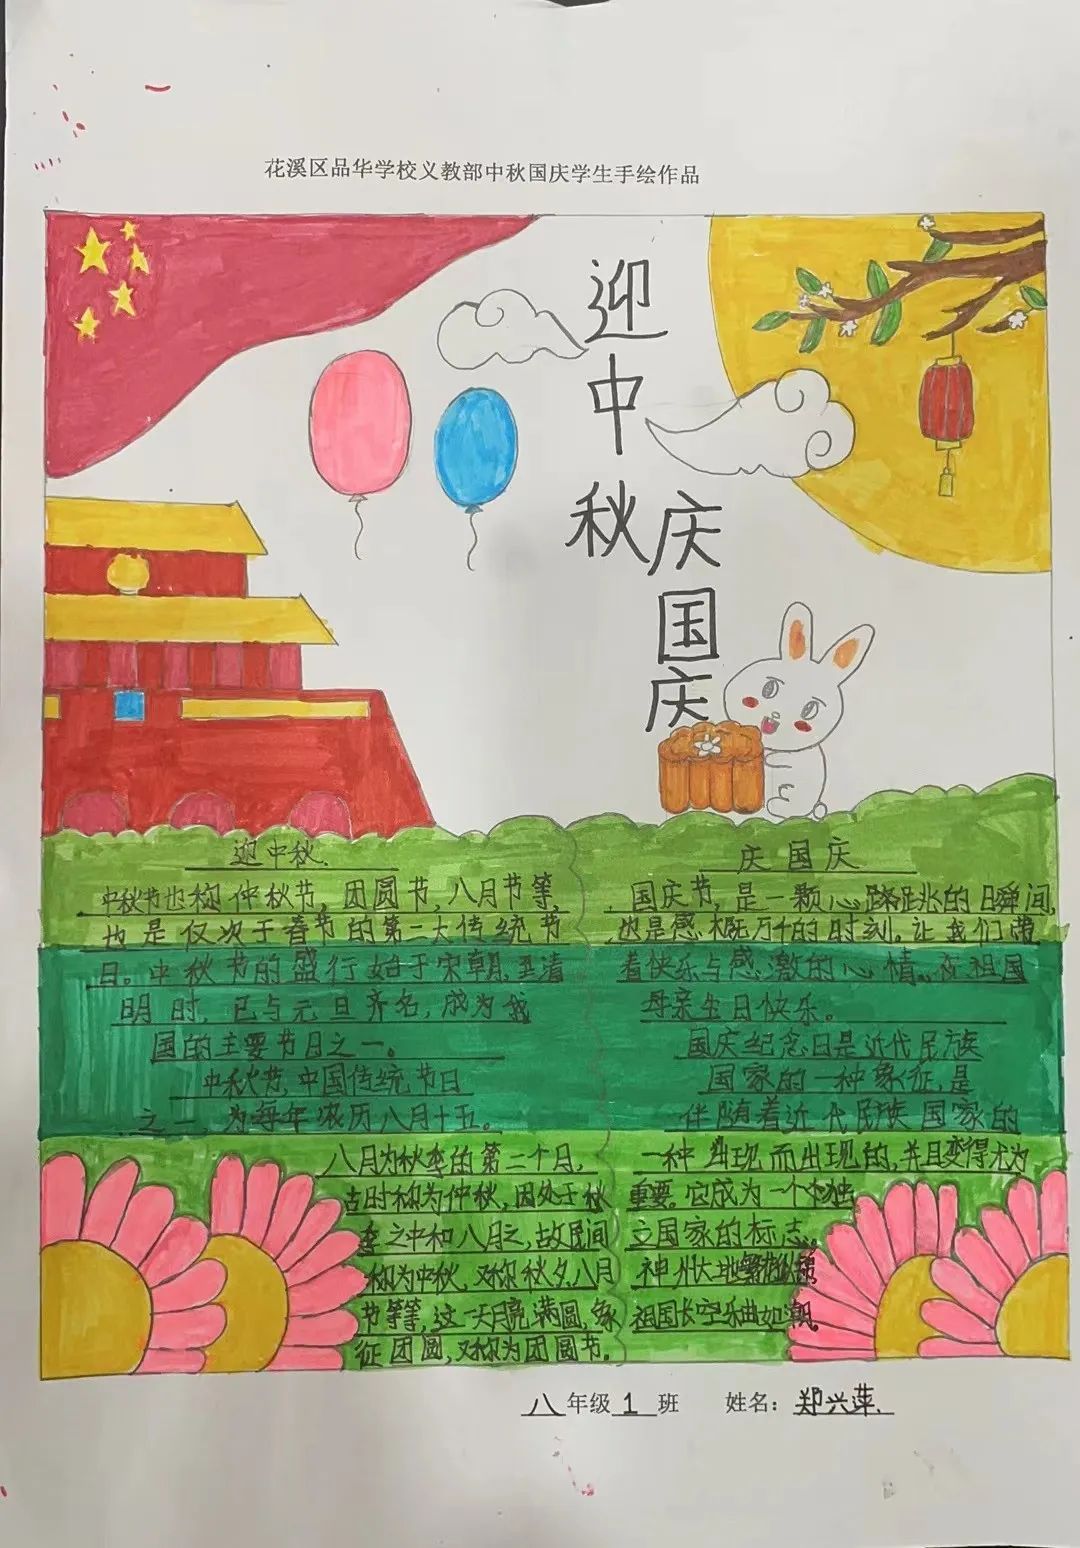 花溪区品华学校义教部中秋国庆学生手绘作品
迎中秋
庆国庆
迎中秋
中秋节也称仲秋节，团圆节，八月节等，
也是仅次于春节的第二大传统节
日。中秋节的盛行始于宋朝，至清
明时，已与元旦齐名，成为我
国的主要节日之一。
中秋节，中国传统节日
之一，为每年农历八月十五。
八月为秋季的第二个月，
古时称为仲秋，因处于秋
季之中和八月之，故民间
称为中秋，又称秋夕，八月
节等等，这一天月亮满圆，象
征团圆，又称为团圆节。
庆国庆
国庆节，是一颗心跳的瞬间，
也是感概万千的时刻，让我们带
着快乐与感激的心情。在祖国
母亲生日快乐。
国庆纪念日是近代民族
国家的一种象征，是
伴随着近代民族国家的
一种出现而出现的，并且变得尤为
重要。它成为一个独
立国家的标志。
神州大地
祖国长空乐曲如潮。
八年级1班 姓名：郑兴萍.